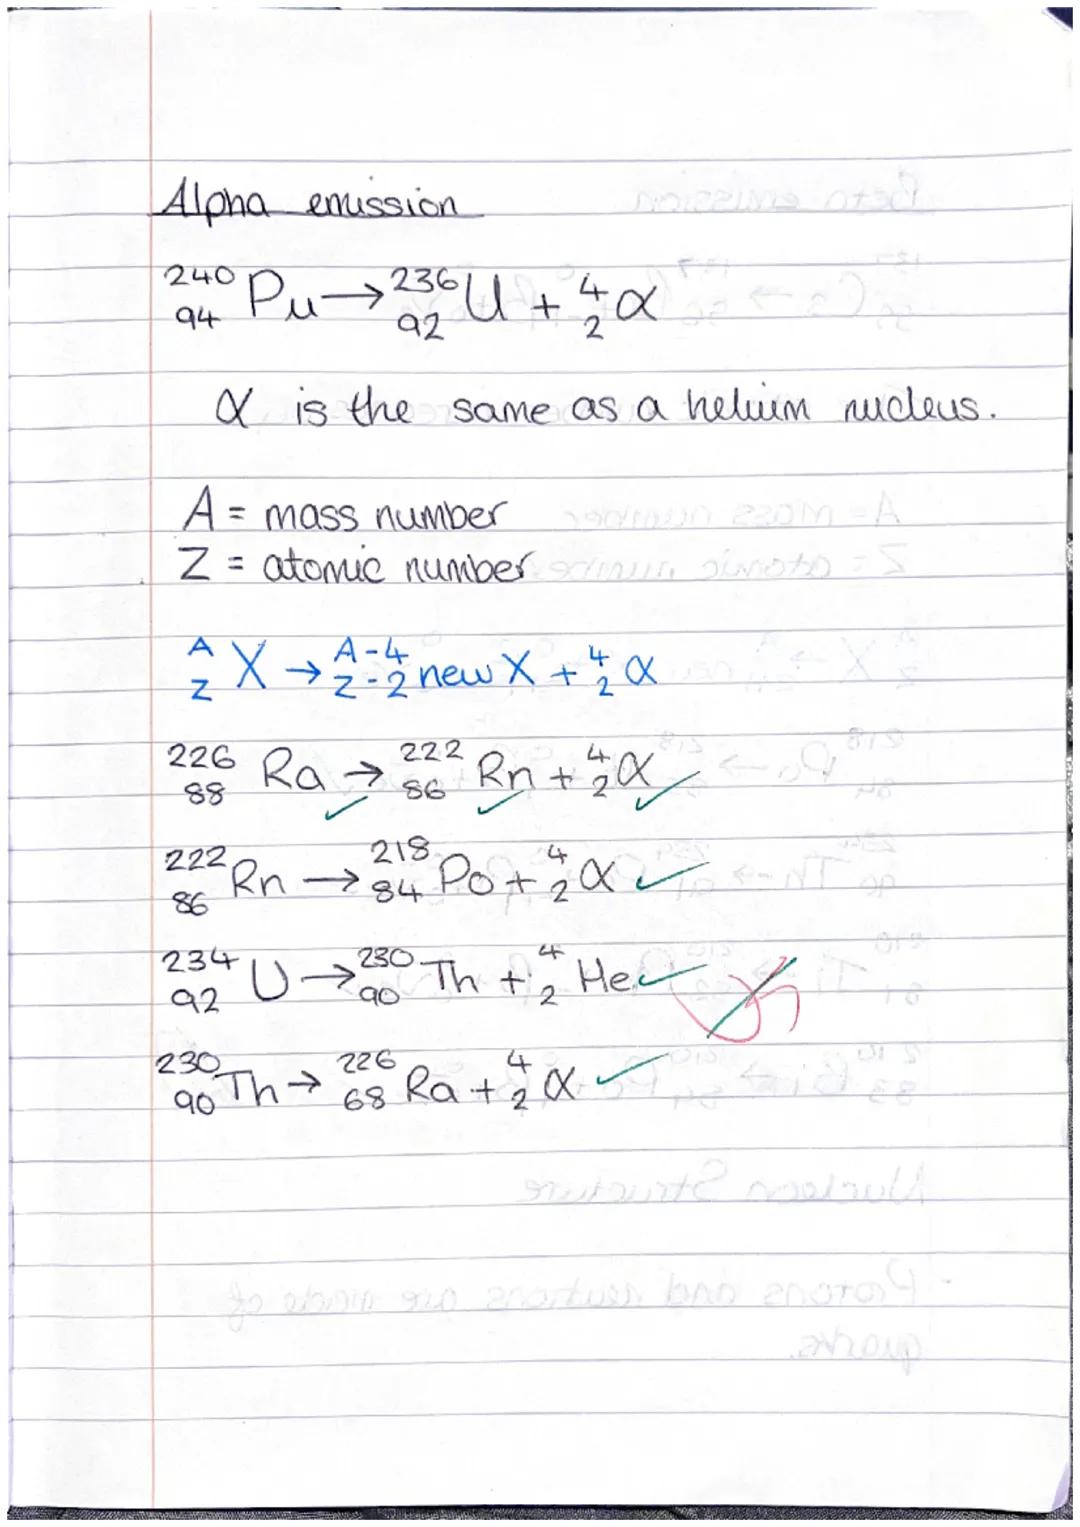 Alpha emission
²⁴⁰₉₄Pu → ²³⁶₉₂U + ⁴₂α
α is the same as a helium nucleus.
A = mass number
Z = atomic number
ᴬ_Z X → ᴬ⁻⁴_Z₋₂ new X + ⁴₂α
²²⁶₈₈Ra → ²²²₈₆Rn + ⁴₂α
²²²₈₆Rn → ²¹⁸₈₄Po + ⁴₂α
²³⁴₉₂U → ²³⁰₉₀Th + ⁴₂He
²³⁰₉₀Th → ²²⁶₆₈Ra + ⁴₂α